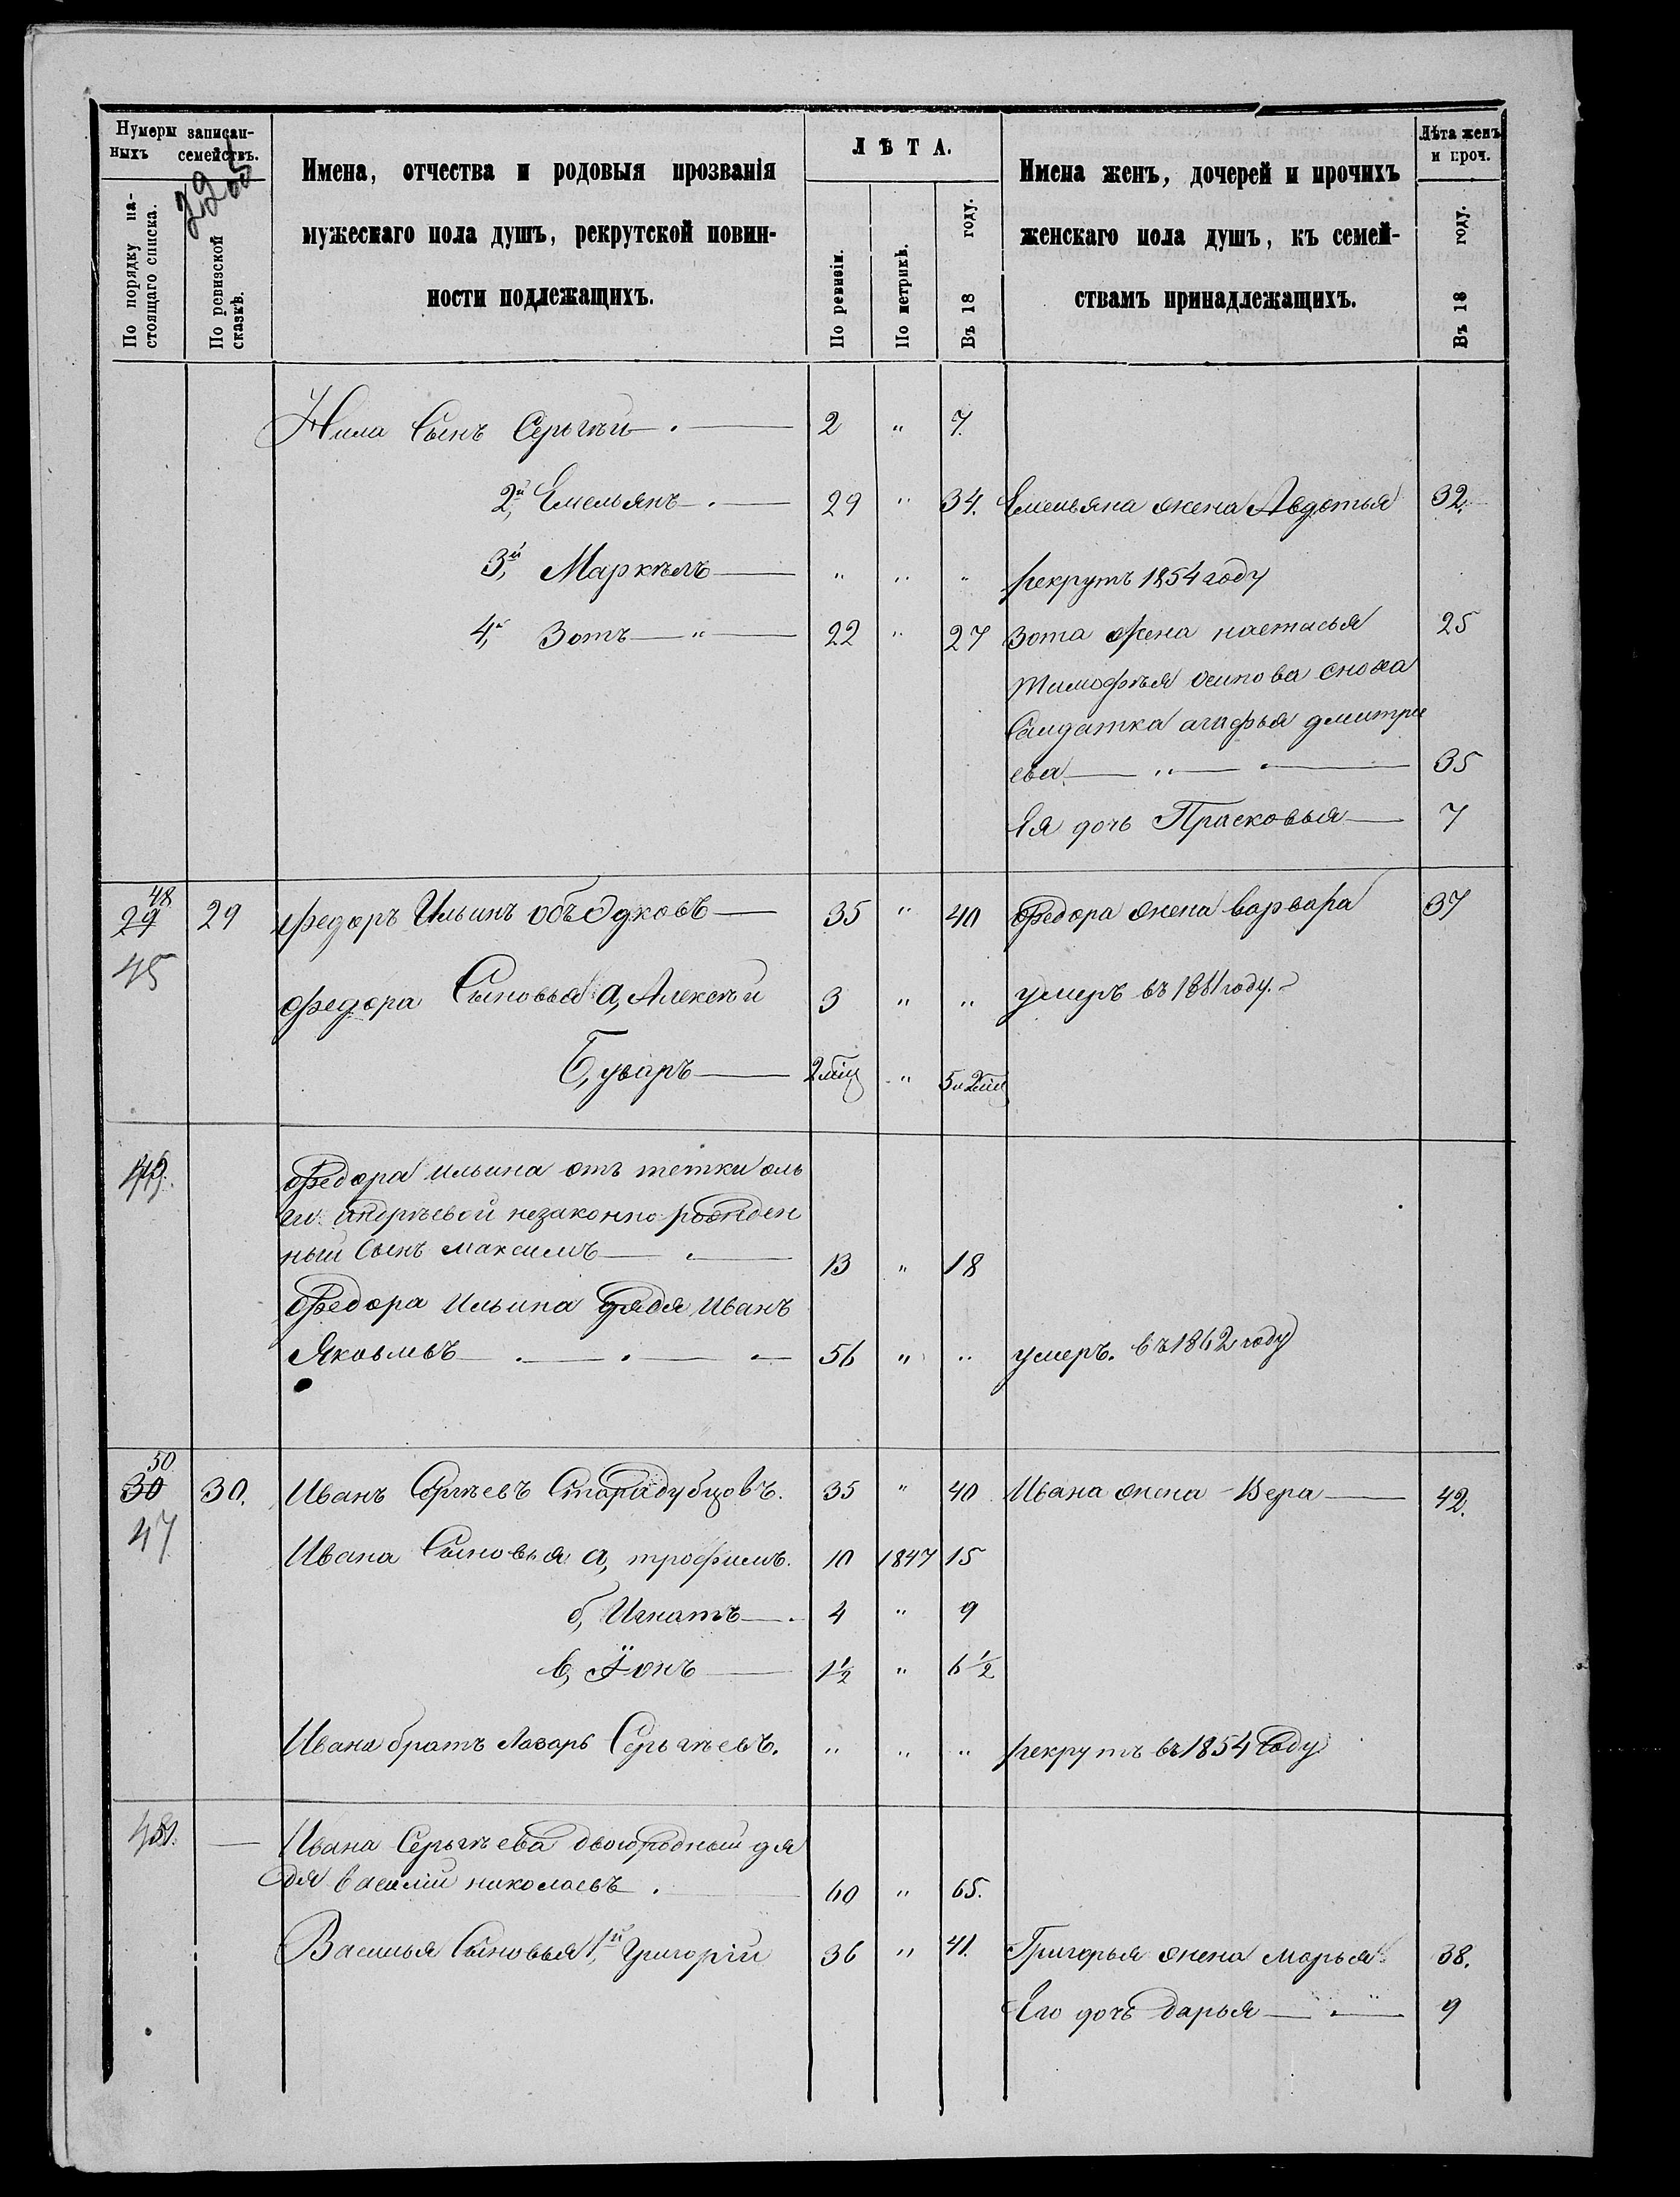 Нумеры записан-
ныхъ семействъ.
По порядку на-
стоящаго списка.
По ревизской
сказкѣ.
Имена, отчества и родовыя прозванія
мужескаго пола душъ, рекрутской повин-
ности подлежащихъ.
ЛѢТА.
По ревизіи.
По метрикѣ.
Въ 18 году.
Имена женъ, дочерей и прочихъ
женскаго пола душъ, къ семей-
ствамъ принадлежащихъ.
Лѣта женъ
и проч.
Въ 18 году.
Нила Сынъ Сергѣй 2 " 7.
2й Емельянъ 29 " 34. Емельяна жена Авдотья 32.
3й, Маркелъ " " " рекрутъ 1854 году
4,й Зотъ " 22 " 27 Зота жена настасья 25
тимофѣя осипова сноха
Салдатка агафья дмитри
ева 35
Ея дочь Прасковья 7
48
29 29 федоръ Ильинъ объѣдковъ 35 " 40 федора жена варвара 37
45
федора Сыновья а, Алексѣй 3 " " умеръ въ 1861 году.
Б, уваръ 2 мѣц " 5 и 2 мѣц
49.
федора ильина отъ тетки оль
ги андрѣевой незаконно рожден
ный Сынъ максимъ 13 " 18
федора ильина дядя иванъ
Яковлевъ 56 " " умеръ. въ 1862 году
50
30 30. Иванъ Сергѣевъ Стародубцовъ. 35 " 40 Ивана жена Вера 42.
47
Ивана Сыновья а, трофимъ. 10 1847 15
б, Игнатъ 4 " 9
в, Іонъ 1½ " 6½
Ивана братъ Лазарь Сергѣевъ. " " " рекрутъ въ 1854 Году
51.
Ивана Сергѣева двоюродный дя
дя василій николаевъ 60 " 65.
Василья Сыновья 1й, Григорій 36 " 41. Григорья жена марья 38.
Его дочь дарья 9